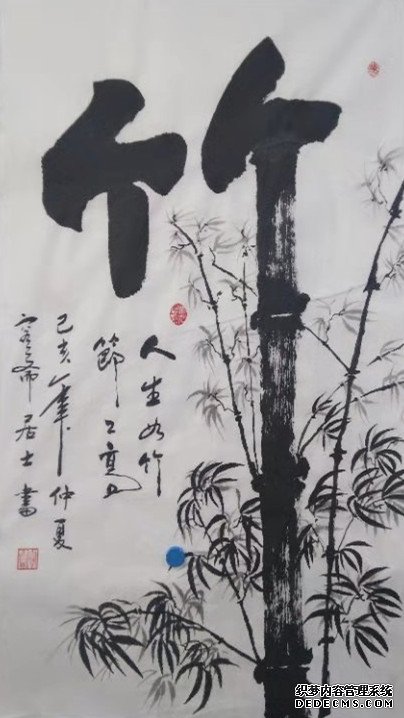 竹
人生如竹
節々高
己亥年仲夏
居士書
织梦内容管理系统
DEDECMS.COM